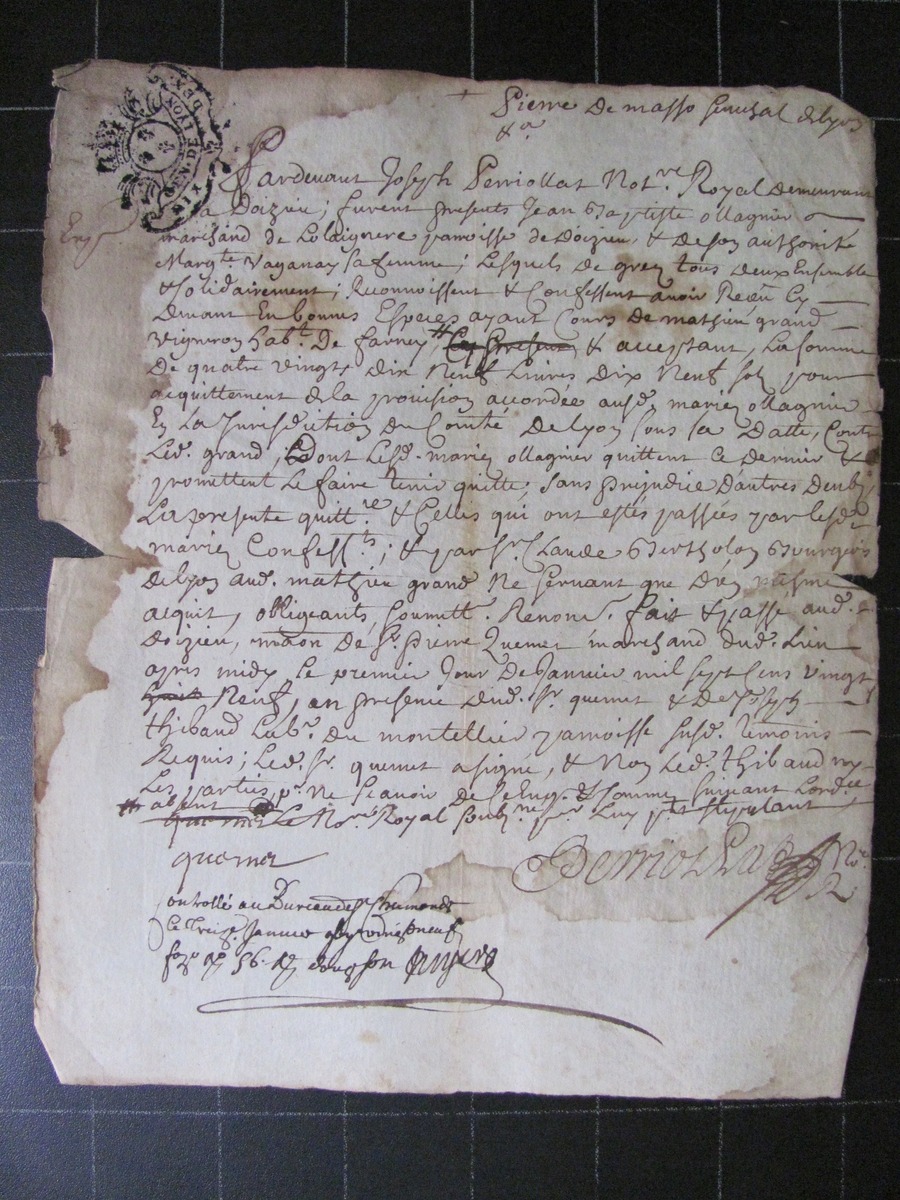 Pierre De masso Senechal de lyon
&a
GEN. DE LYON
SIX DEN.
Pardevant Joseph Perriollat Notre. Royal Demeurant
a Doizieu; furent presents Jean Baptiste ollagnier
marchand de paroisse de Doizieu, & De son authorité
Margte. Vaganay sa femme; Lesquels de grez tous deux Ensemble
& solidairement; Reconnoissent & Confessent avoir Reçu Cy
Devant En bonnes Especes ayant Cours De mathieu grand
vigneron habt. De farney, & acceptant, La somme
De quatre vingts Dix Neuf Livres Dix Neuf sols pour
acquittement de la provision accordée ausd. mariez ollagnier
En La Jurisdiction du Comté De lyon sous sa Datte, Contre
Led. grand, Dont Lesd. mariez ollagnier quittent Ce Dernier &
promettent Le faire tenir quitte, sans prejudice D'autres
La presente quittre. & Celles qui ont estés passées par lesd.
mariez Confessts.; & par Sr. Claude Bertholon Bourgeois
De lyon aud. mathieu grand Ne servant que D'un mesme
acquit, obligeants, soumitt. Renonc. fait & passé aud.
Doizieu, maison De Sr. pierre Quemet marchand dud. Lieu
apres midy Le premier Jour De Janvier mil sept Cens vingt
Neuf, en presence dud. Sr. quemet & De Joseph
thibaud Labr. du montellier paroisse susd. temoins
Requis; Led. Sr. quemet a signé, & Non Led. thibaud ny
Les parties, pr. Ne scavoir De Ce Enqs. & sommes suivant Lordce
absent Le Nore. Royal soubne. pour Luy pnt stipulant
quemet
Perriollat Nore.
ontrollé au Bureau de St. Chaumond
le treize Janvier vingt neuf